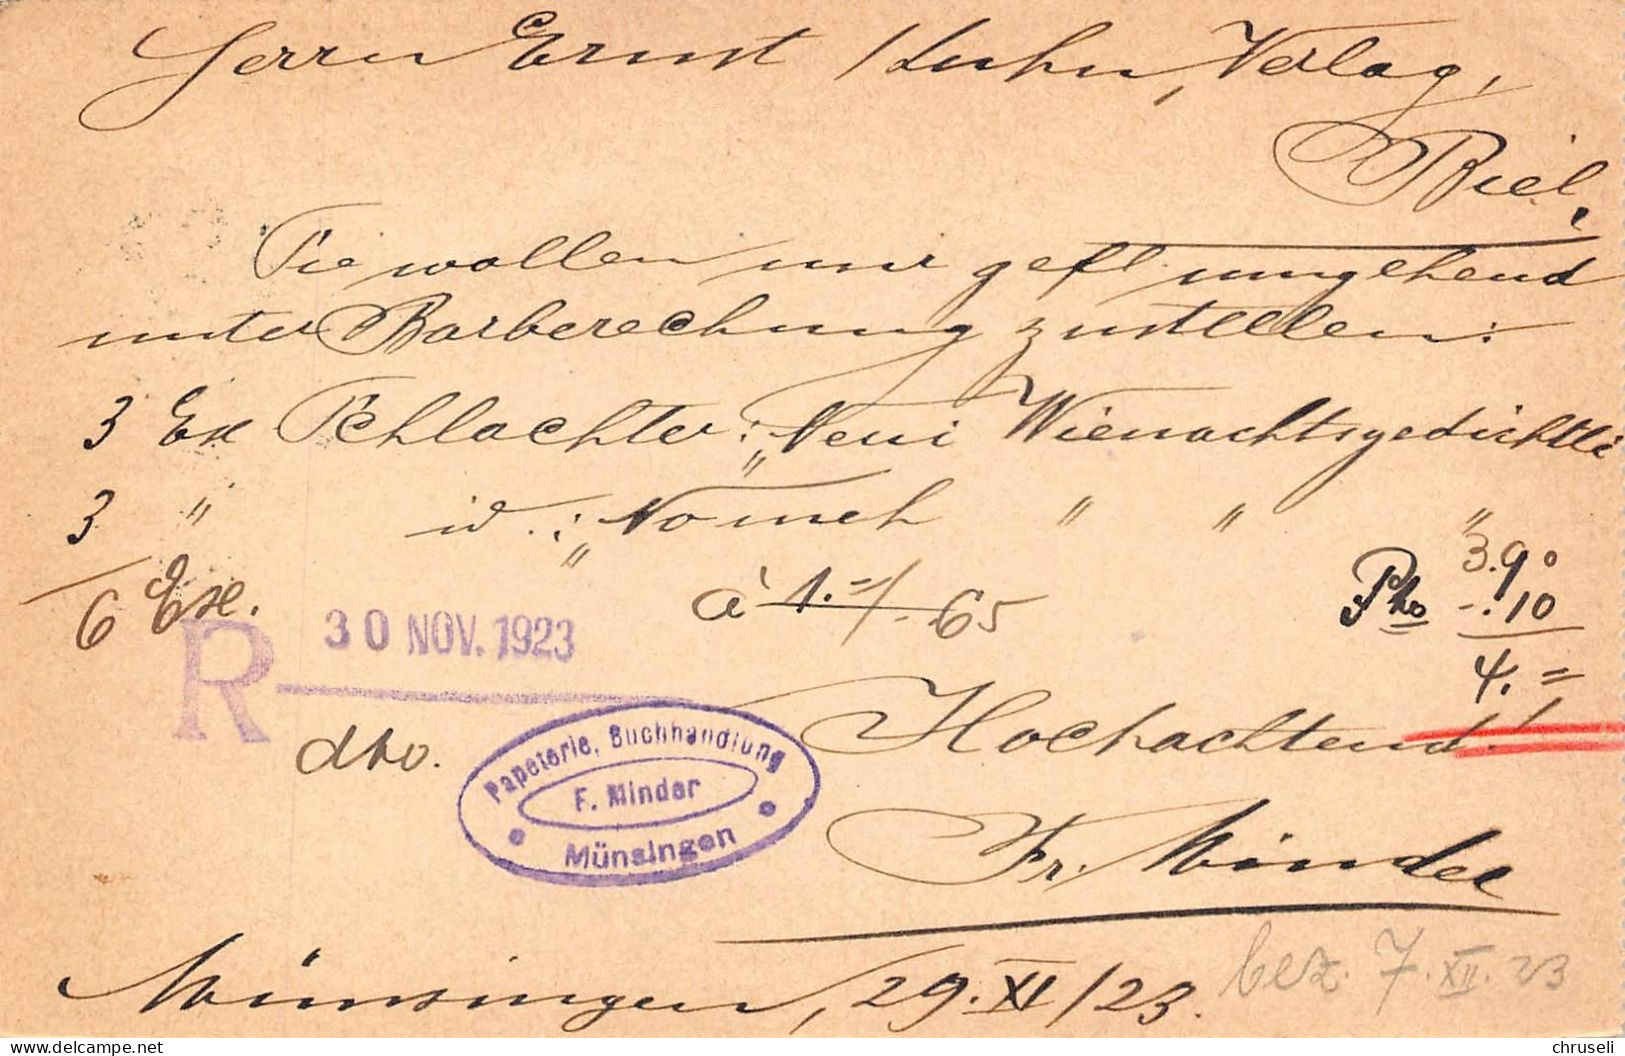 Herrn Ernst Kuhn, Verlag,
Biel.
Sie wollen mir gefl. umgehend
unter Barberechnung zustellen:
3 Ex Schlachter: „Neui Wienachtsgedichtli
3 " id.: „No meh " " "
6 Exe. à 1.= / -.65
3.90
Pto -.10
4.=
R 30 NOV. 1923
dto.
Hochachtend!
Papeterie, Buchhandlung
F. Minder
Münsingen
Fr. Minder
Münsingen, 29. XI/23.
bez. 7. XII. 23
chruseli
delcampe.net